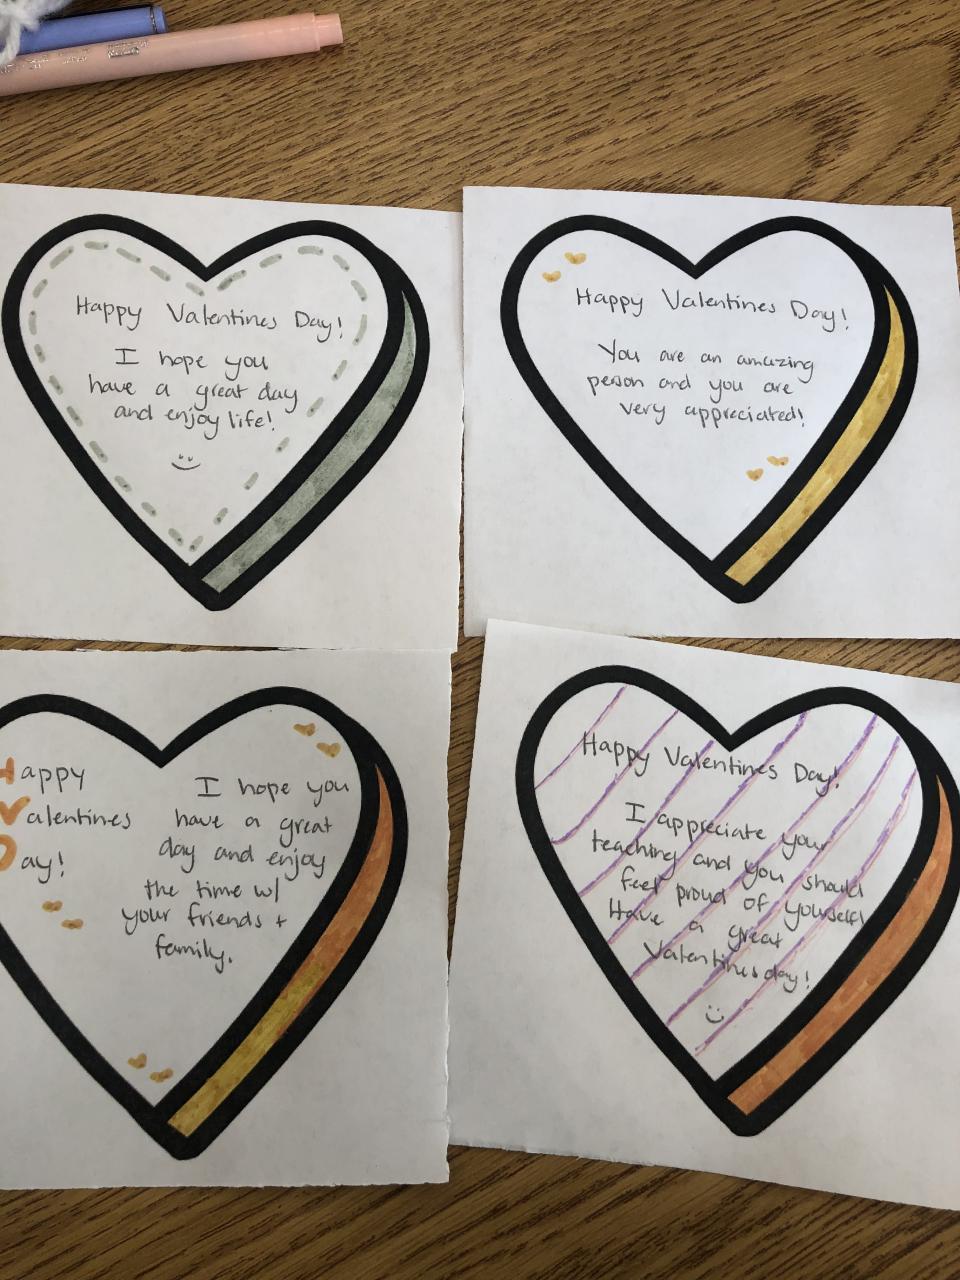 Happy Valentines Day!
I hope you
have a great day
and enjoy life!
Happy Valentines Day!
You are an amazing
person and you are
very appreciated!
Happy
Valentines
Day!
I hope you
have a great
day and enjoy
the time w/
your friends +
family.
Happy Valentines Day!
I appreciate your
teaching and you should
feel proud of yourself!
Have a great
Valentines day!